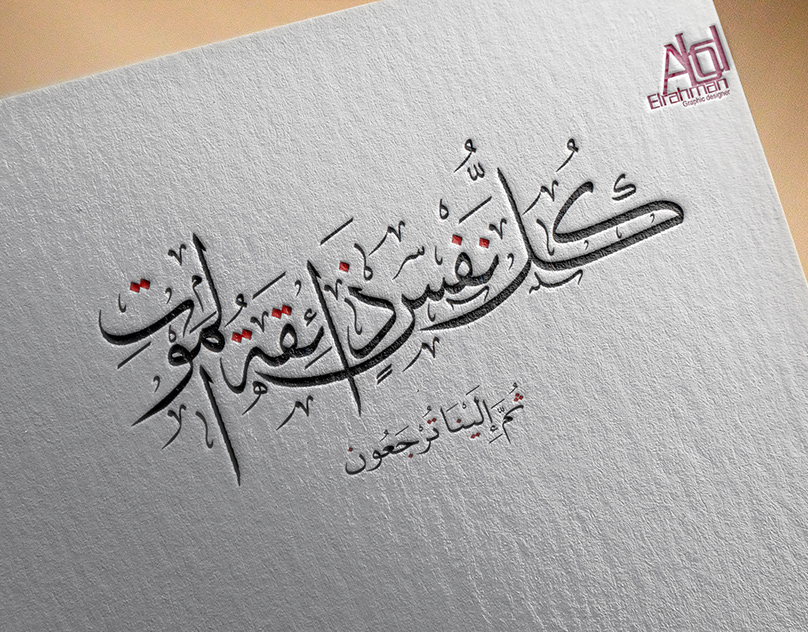 كُلُّ نَفْسٍ ذَائِقَةُ الْمَوْتِ
ثُمَّ إِلَيْنَا تُرْجَعُون
Elrahman
Graphic designer